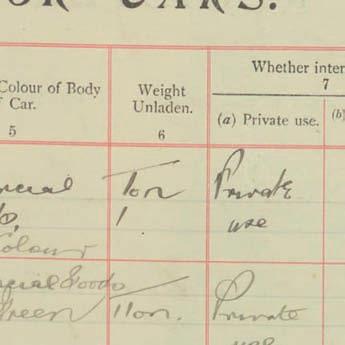 OR CARS.
Colour of Body
Car.
5
Weight
Unladen.
6
Whether inter
7
(a) Private use.
(b)
Ton
1
Private
use
Colour
Goods
Green
1 Ton.
Private
use